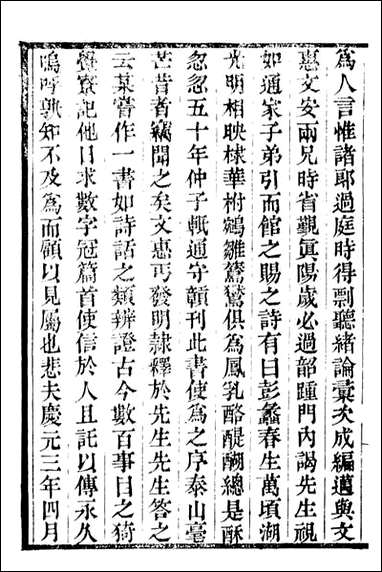 爲人言惟諸郎過庭時得剽聽緒論彙次成編邁與文
惠文安兩兄時省覲眞陽歲必過韶踵門內謁先生視
如通家子弟引而館之賜之詩有曰彭蠡春生萬頃湖
光明相映棣華柎鵷雛鸑鷟俱爲鳳乳酪醍醐總是酥
忽忽五十年仲子軧通守贛刊此書使爲之序泰山毫
芒昔者竊聞之矣文惠丐發明隷釋於先生先生答之
云某嘗作一書如詩話之類辨證古今數百事目之猗
覺寮記他日求數字冠篇首使信於人且託以傳永久
嗚呼孰知不及爲而顧以見屬也悲夫慶元三年四月